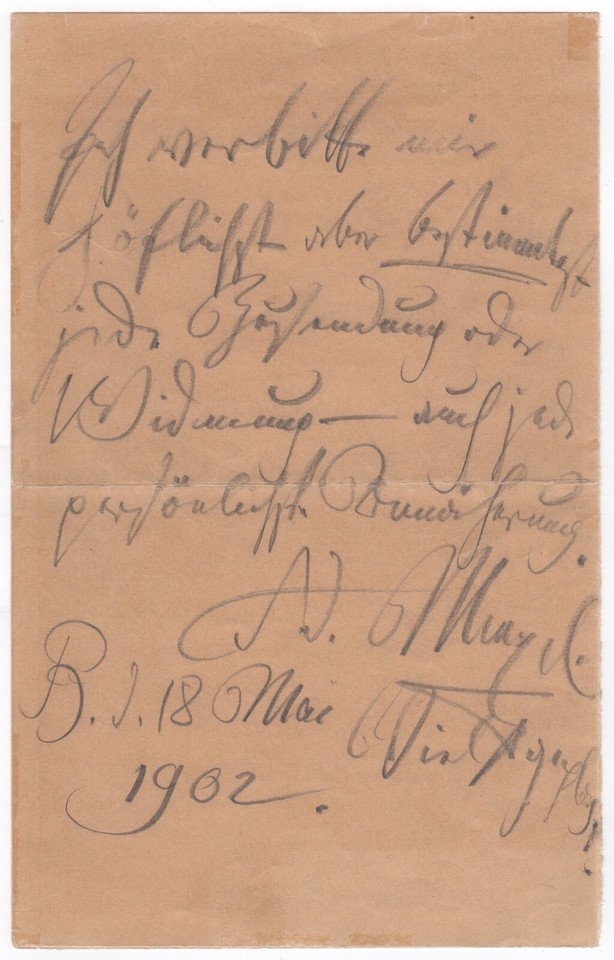 Ich verbitte mir
höflichst aber bestimmtest
jede Zusendung oder
Widmung — auch jede
persönliche Annäherung.
A. Menzel.
B. d. 18 Mai
1902.